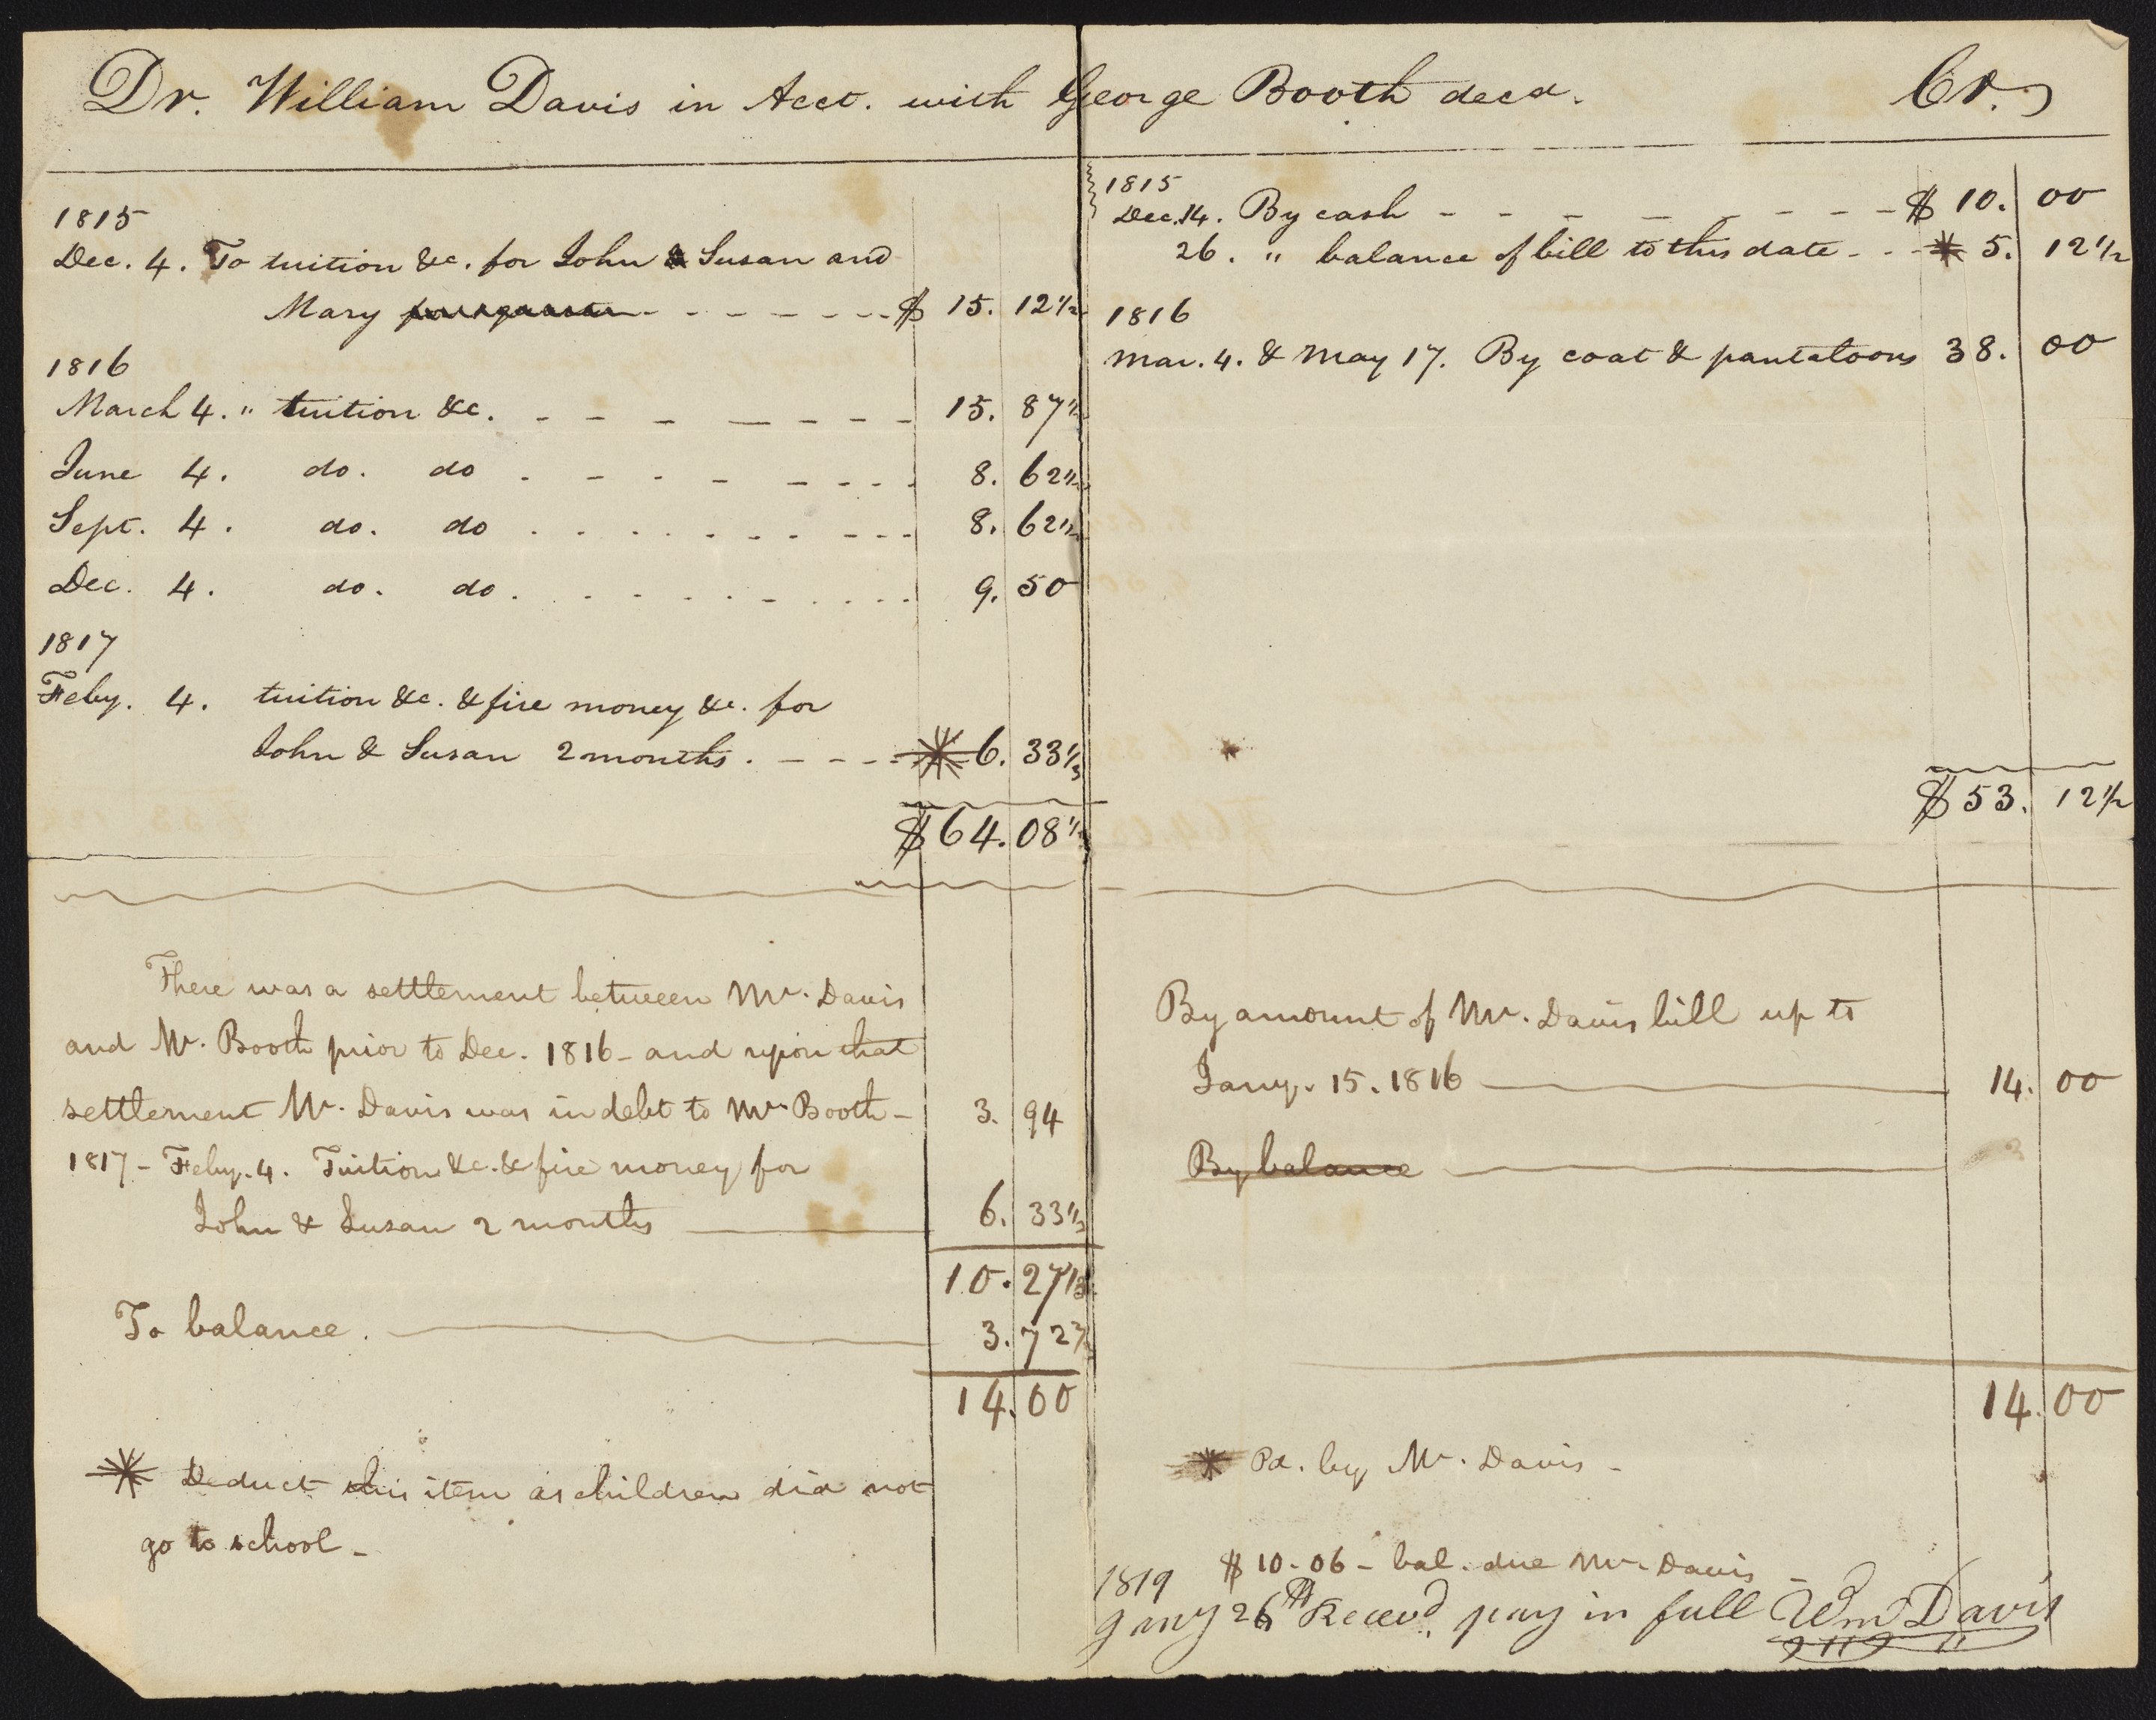 Dr. William Davis in Acct. with George Booth decd. Cr.
1815
Dec. 4. To tuition &c. for John & Susan and
Mary - - - - - - - $ 15. 12 1/2
1816
March 4. " tuition &c. - - - - - - - - 15. 87 1/2
June 4. do. do - - - - - - - - 8. 62 1/2
Sept. 4. do. do . . . . . . . - - - 8. 62 1/2
Dec. 4. do. do . . . . . . . . . . . 9. 50
1817
Feby. 4. tuition &c. & fire money &c. for
John & Susan 2 months . - - - - * 6. 33 1/3
$ 64. 08 1/3
There was a settlement between Mr. Davis
and Mr. Booth prior to Dec. 1816 - and upon that
settlement Mr. Davis was in debt to Mr. Booth - 3. 94
1817 - Feby. 4. Tuition &c. & fire money for
John & Susan 2 months 6. 33 1/3
10. 27 1/3
To balance. 3. 72 2/3
14. 00
* Deduct this item as children did not
go to school -
1815
Dec. 14. By cash - - - - - - - - - $ 10. 00
26. " balance of bill to this date - - - * 5. 12 1/2
1816
Mar. 4. & May 17. By coat & pantaloons 38. 00
*
$ 53. 12 1/2
By amount of Mr. Davis bill up to
Jany. 15. 1816 14. 00
By balance
14. 00
* Pd. by Mr. Davis -
$ 10-06 - bal. due Mr. Davis -
1819
Jany 26th Recevd. pay in full Wm Davis